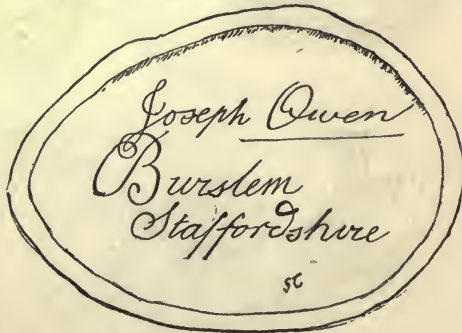 Joseph Owen
Burslem
Staffordshire